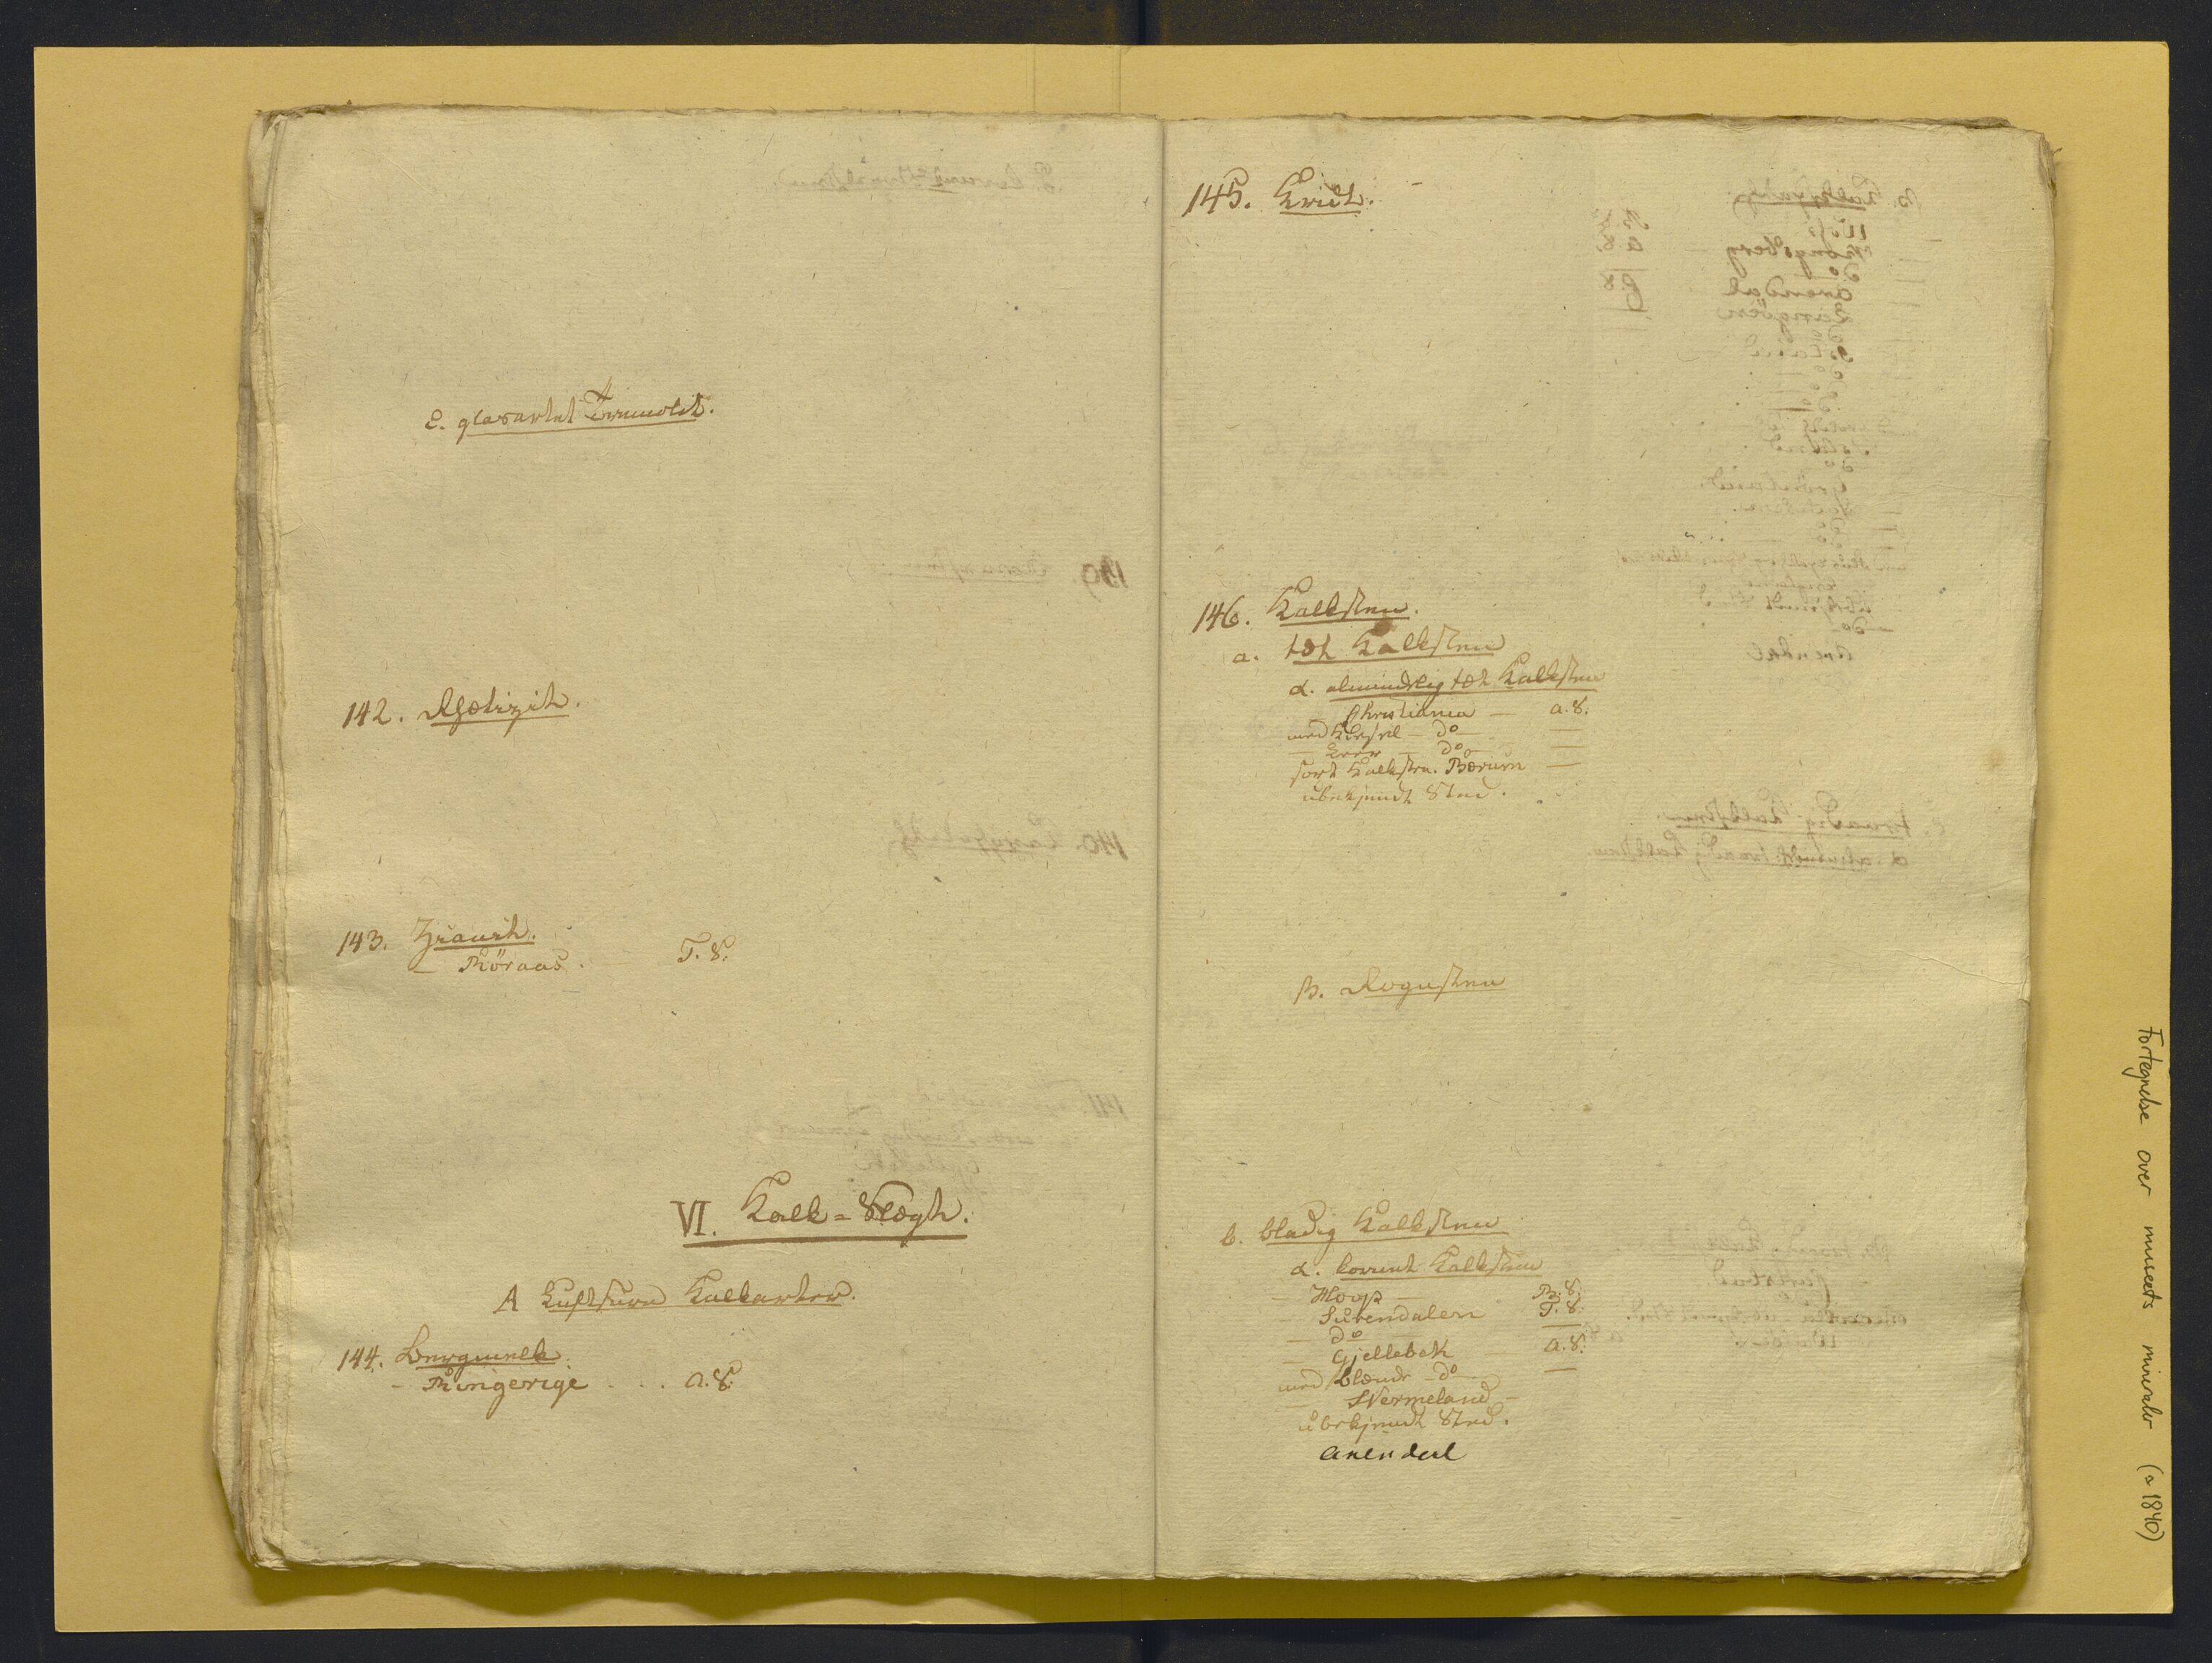 c. glasartet Tremolit.
142. Rhætizit.
143. Zianit.
— Röraas. T. S.
VI. Kalk-Slægt.
A Luftsure Kalkarter.
144. Bergmelk.
— Ringerige . . . A. S.
145. Krit.
146. Kalksten.
a. tæt Kalksten
α. almindelig tæt Kalksten
Christiania — A. S.
med Kiesel — do —
— — do —
sort Kalksten. Bærum —
ubekjendt Sted.
β. Rogensten
b. bladig Kalksten
α. kornet Kalksten
— Moss — B. S.
— Surendalen T. S.
— do —
— Gjellebek — A. S.
med Blende — do —
— Wermeland —
ubekjendt Sted.
Arendal
Fortegnelse over museets mineraler (ca 1840)